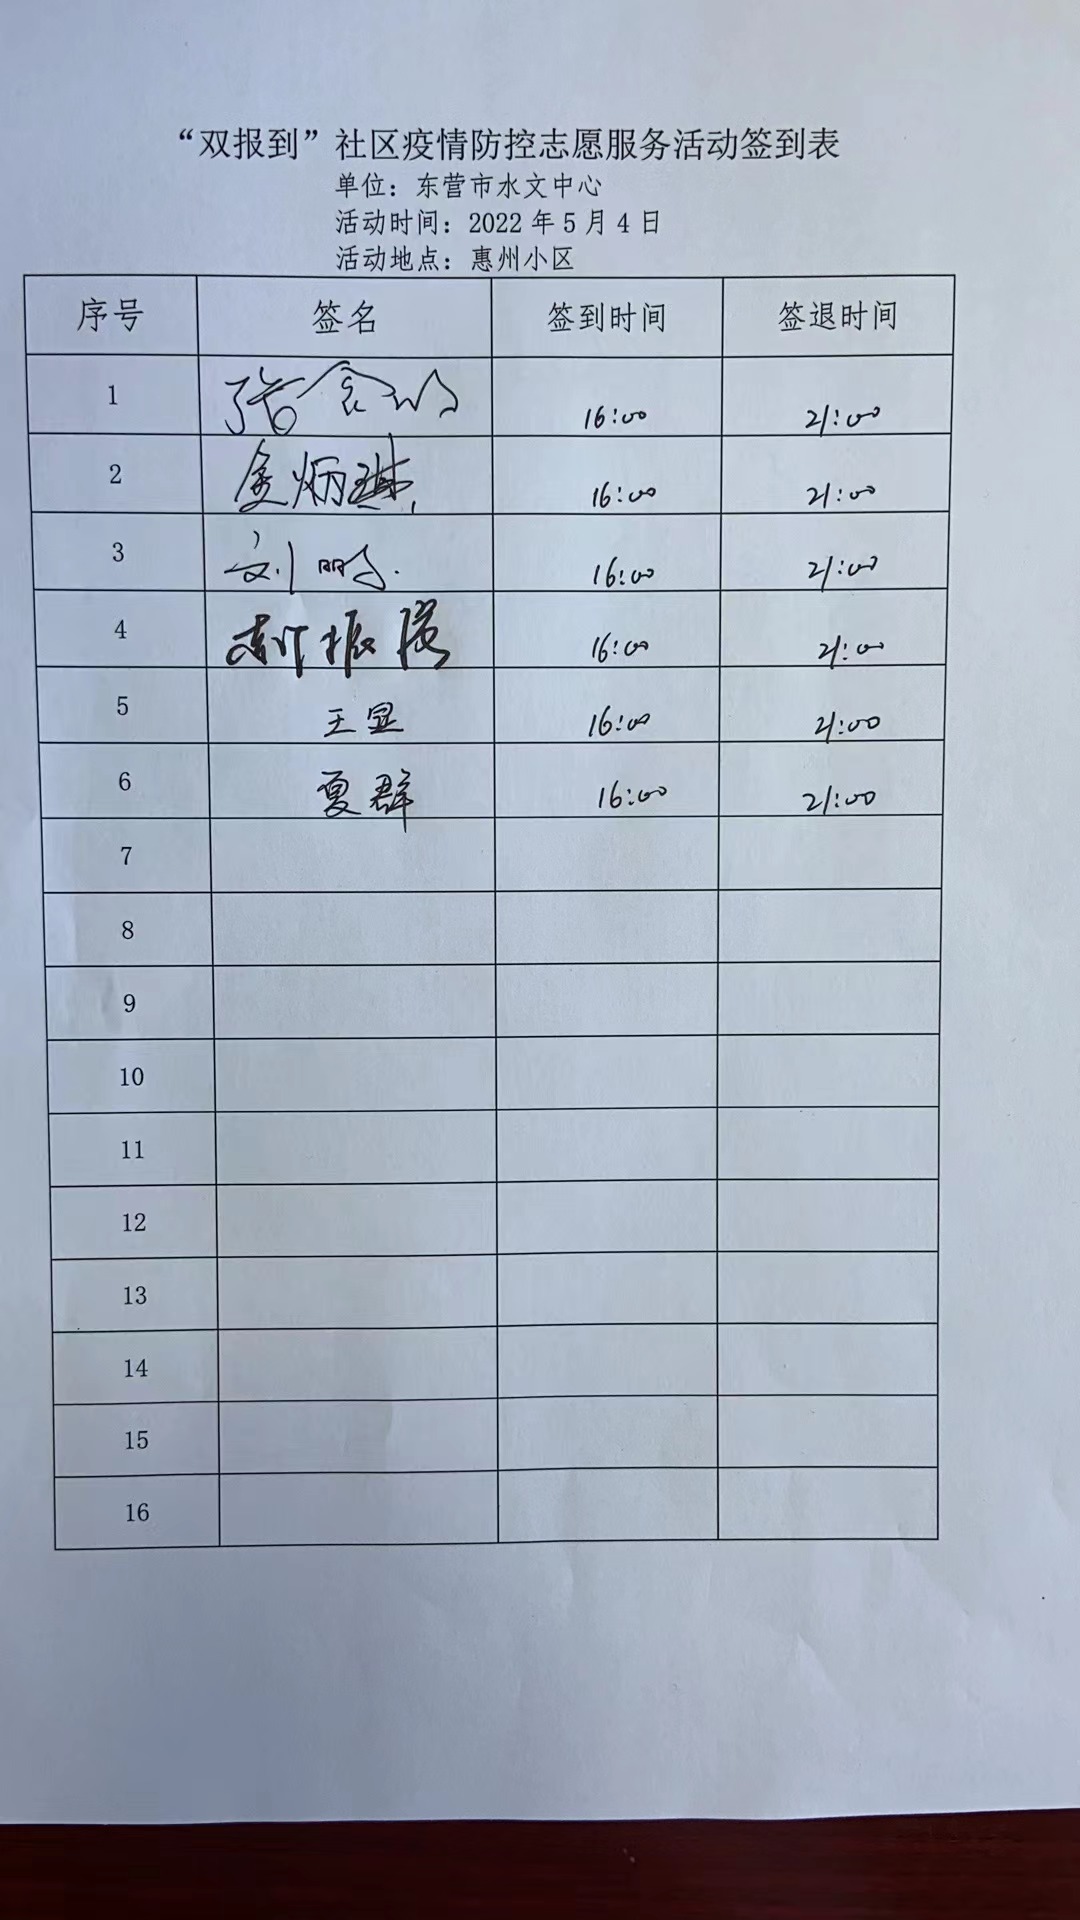 “双报到”社区疫情防控志愿服务活动签到表
单位：东营市水文中心
活动时间：2022 年 5 月 4 日
活动地点：惠州小区
序号 签名 签到时间 签退时间
1 张 16:00 21:00
2 炳琳 16:00 21:00
3 刘鹏 16:00 21:00
4 振 16:00 21:00
5 王显 16:00 21:00
6 夏群 16:00 21:00
7
8
9
10
11
12
13
14
15
16